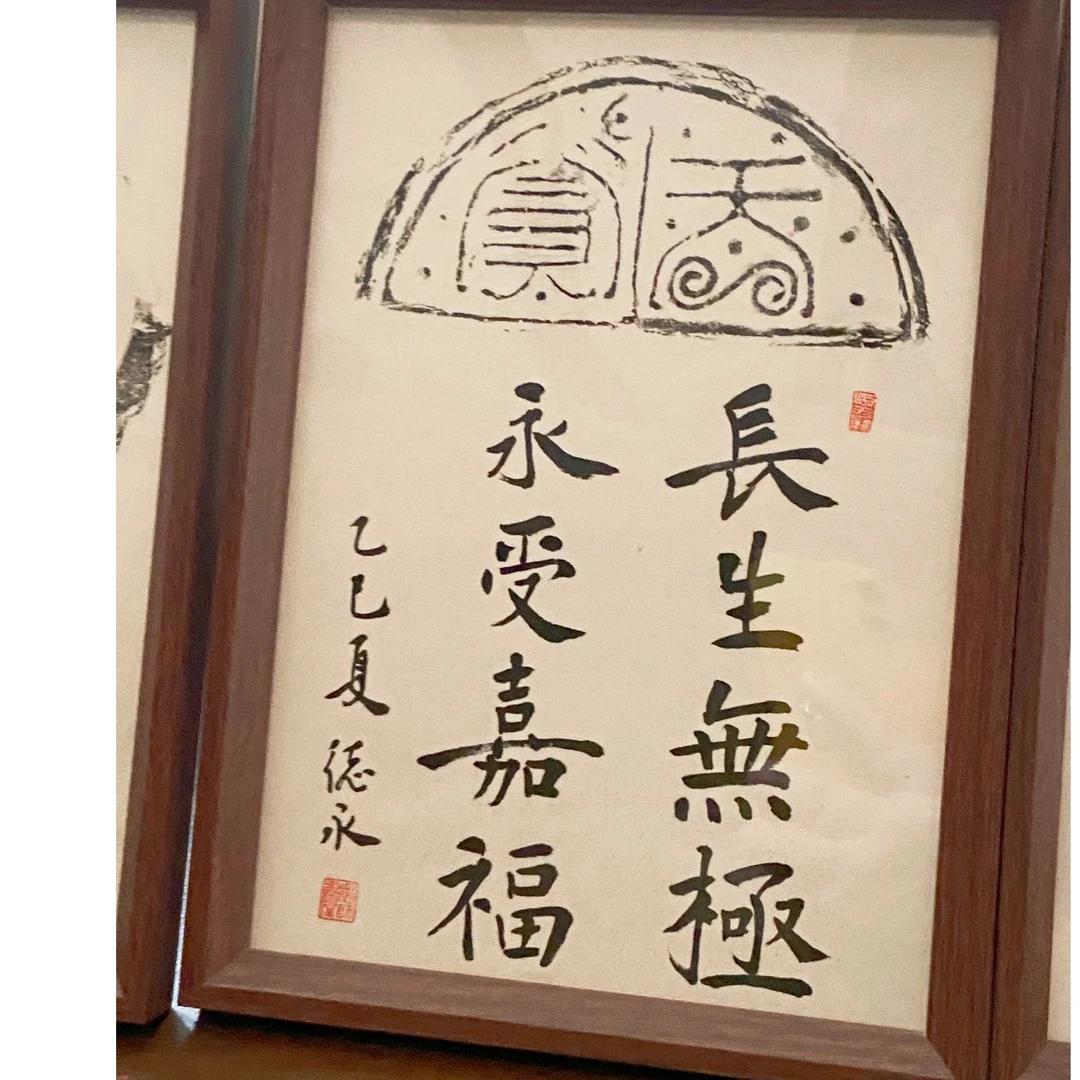 長生無極
永受嘉福
乙巳夏 德永